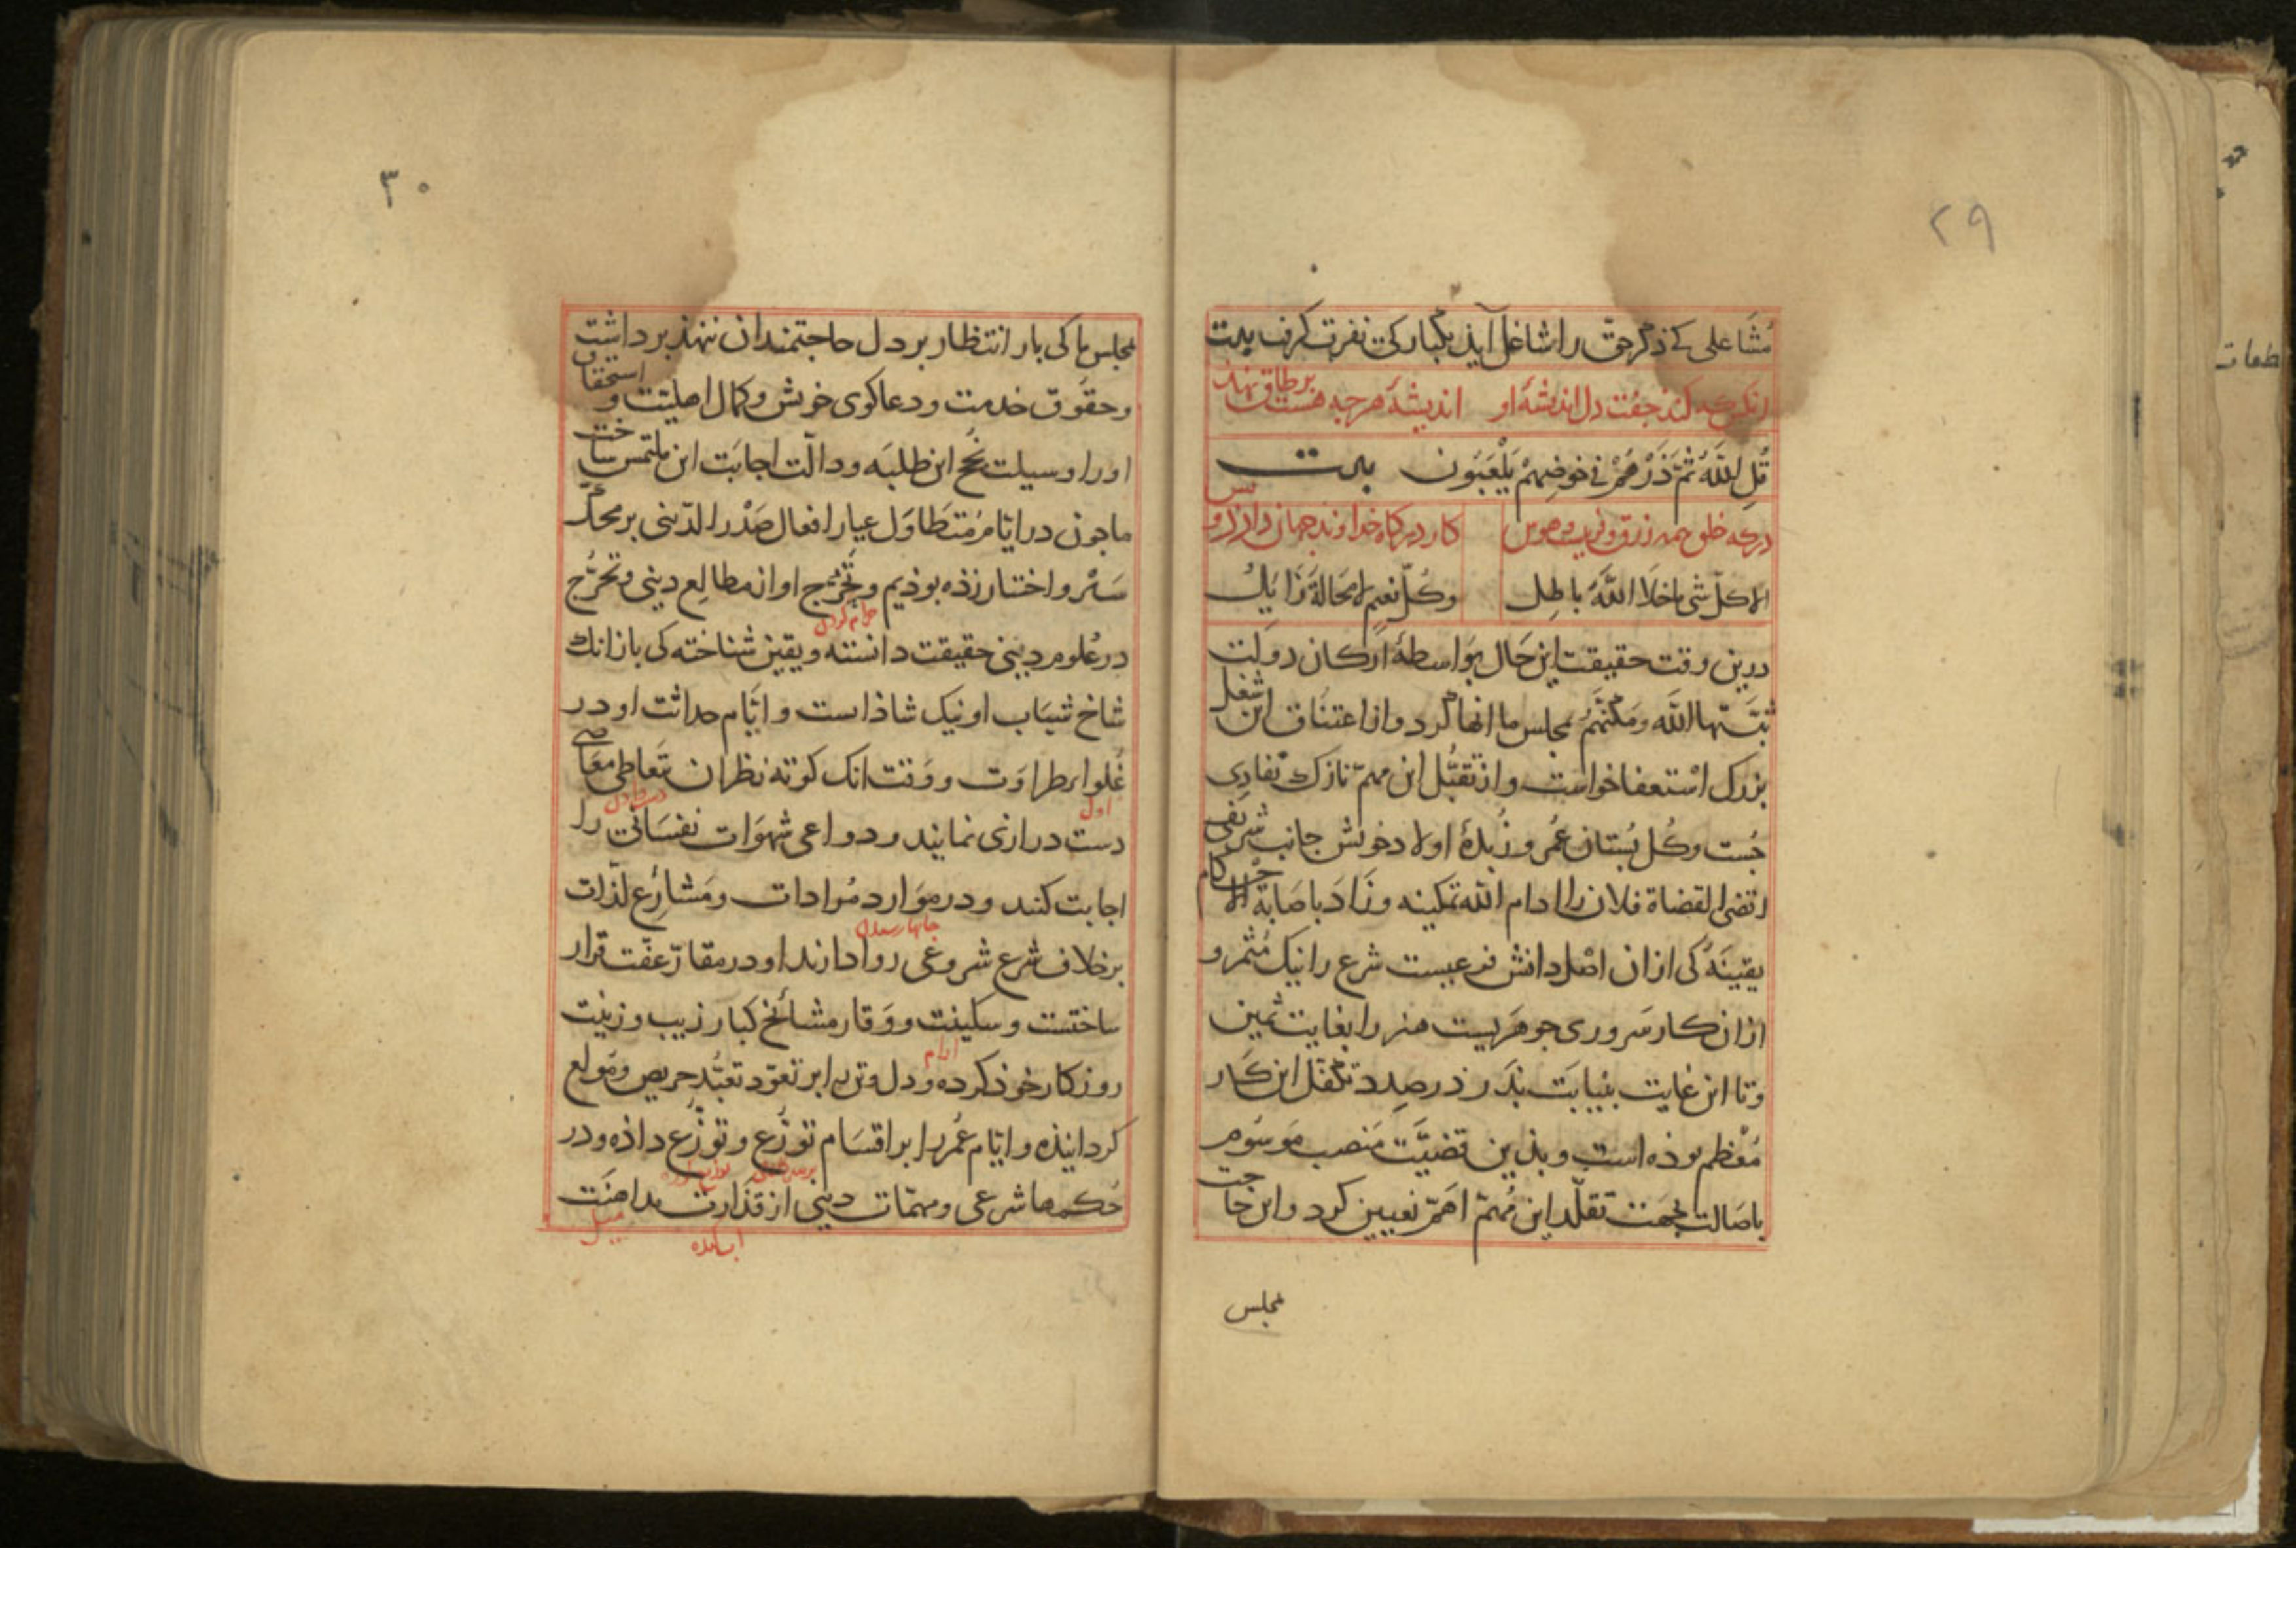 ۲۹
مُشَاغلی که ذکر حق را شاغل آید بکبارکی نفرت کرف بیت
کند جفت دل اندیشهٔ او اندیشهٔ هرچه هست بر طاق نهد
قُلِ اللّٰهُ ثُمَّ ذَرْهُمْ فی خَوضِهِمْ یَلْعَبُون بیت
درکه خلق همه زرق و فریب و هوس کار درکاه خداوند جهان دارد و بس
الا کلّ شی ما خلا اللّٰهَ باطِل وکُلّ نعیم لا محالة زَایلُ
درین وقت حقیقت این حَال بوَاسطهٔ ارکان دولت
ثبّتها اللّٰه ومکّنَهُم بمجلس ما انها کرد و از اعتناق این شغل
بزرک استعفا خواست و از تقبُّل این مهمّ نازک تفادی
جُست و کُل بُستان عُمر و زُبدهٔ اولاد خویش جانب شریف
اقضی القضاة فلان را ادام اللّٰه تمکینه وزَادَ باصَابة الاحکام
یقینَهُ کی ازان اصل دانش فرعیست شرع را نیک مُثمر و
ازان کار سَروری جوهَریست هنر را بغایت ثمین
وتا این غایت بنیابَت پذَر ذر صدد تکفّل این کار
مُعْظم بوذه است و بذین قضیَّت مَنصب مَوسُوم
باصَالت بجهت تقلّد این مُهمّ اهَمّ تعیین کرد و این حاجت
مجلس
۳۰
مجلس ما کی بار انتظار بر دل حاجتمندان ننهذ برداشت
وحقوق خدمت ودعاکوی خویش وکمال اهلیّت و استحقاق
اورا وسیلت نُجح این طلبَه و دالّت اجابَت این ملتمس ساخت
ما جون در ایّام مُتَطَاوَل عیار افعال صَدْر الدّینی بر محکّ
سَبْر و اختبار زذه بوذیم و تخریج او از مطالع دینی و تحرُّج
در عُلوم دینی حقیقت دانسته و یقین شناخته کی باز انک
شاخ شبَاب او نیک شاذاست و ایَّام حداثت او در
غُلواء طراوَت و وقت انک کوته نظران بتَعاطی معَاصی
اول
دست درازی نمایند و دواعی شهوَات نفسَانی را
اجابت کنند و در مَوارد مُرادات ومَشارِع لذّات
برخلاف شرع شروعی روا دارند او در مقارّ عفّت قرار
ساختست و سکینت و وَقار مشائخ کبار زیب وزینت
روزکار خوذ کرده و دل وتن را بر تعوّد تعبُّد حریص ومُولع
کردانیذه و ایّام عُمر را بر اقسَام تورُّع و توزُّع داذه و در
حُکمها شرعی و مهمّات دینی از قذارت مداهنَت
میل